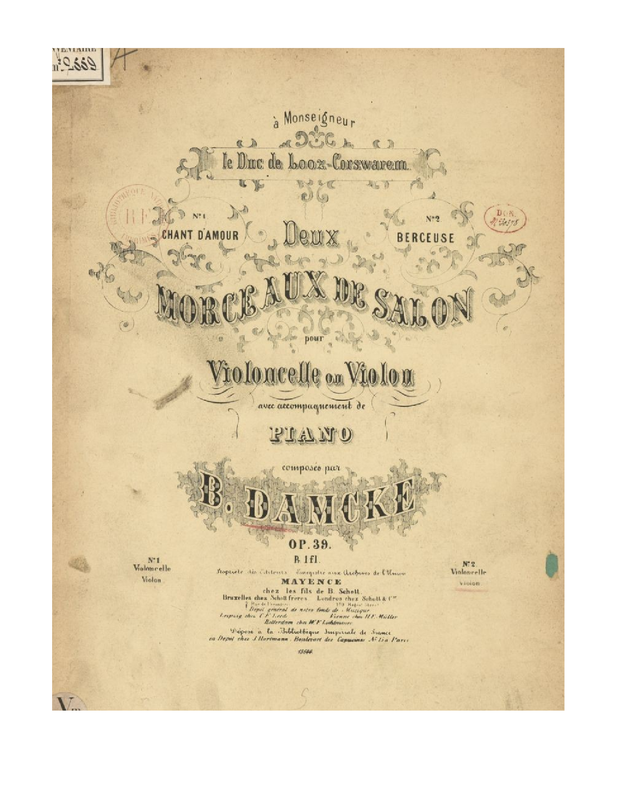 INVENTAIRE
2559
à Monseigneur
le Duc de Looz-Corswarem
Nº1
CHANT D'AMOUR
Deux
Nº2
BERCEUSE
DON.
MORCEAUX DE SALON
pour
Violoncelle ou Violon
avec accompagnement de
PIANO
composés par
B. DAMCKE
OP. 39.
Nº1
Violoncelle
Violon
Nº2
Violoncelle
Propriété des Editeurs. Enregistré aux Archives de l'Union
MAYENCE
chez les fils de B. Schott.
Bruxelles chez Schott frères Londres chez Schott & Cie
Dépôt général de notre fonds de Musique
Leipzig chez C. F. Leede Vienne chez H. F. Müller
Rotterdam chez W. F. Lichtenauer
Déposé à la Bibliothèque Impériale de France
en Dépôt chez J. Hartmann, Boulevart des Capucines Nº 15 à Paris